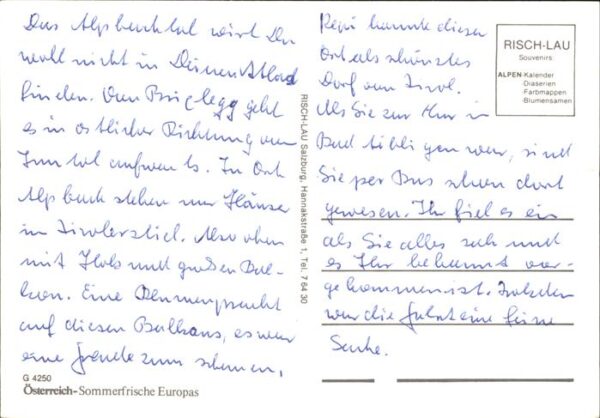 Das Alpbachtal wirst Du
wohl nicht in Deinem Atlas
finden. Von Brixlegg geht
es in östlicher Richtung vom
Inntal aufwärts. Im Ort
Alpbach stehen nur Häuser
im Tirolerstiel. Also oben
mit Holz und großen Bal-
kon. Eine Blumenpracht
auf diesen Balkons, es war
eine Freude zum schauen.
G 4250
Österreich-Sommerfrische Europas
RISCH-LAU Salzburg, Hannakstraße 1, Tel. 7 64 30
Pepi kannte diesen
Ort als schönstes
Dorf von Tirol.
Als Sie zur Kur in
Bad war, sind
Sie per Bus schon dort
gewesen. Ihr fiel es ein
als Sie alles sah und
es Ihr bekannt vor-
gekommen ist. Trotzdem
war die Fahrt eine feine
Sache.
RISCH-LAU
Souvenirs:
ALPEN-Kalender
-Diaserien
-Farbmappen
-Blumensamen